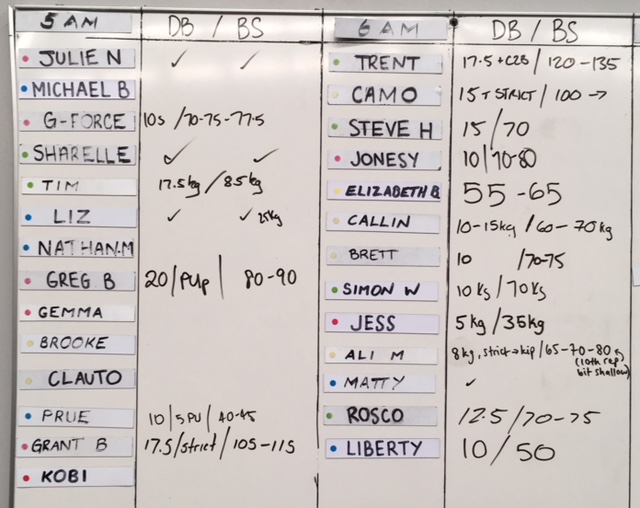 5 AM DB / BS
JULIE N ✓ ✓
MICHAEL B
G-FORCE 10s /70-75-77.5
SHARELLE ✓ ✓
TIM 17.5kg / 85kg
LIZ ✓ ✓ 25kg
NATHAN.M
GREG B 20/PUp | 80-90
GEMMA
BROOKE
CLAUTO
PRUE 10|5PU / 40-45
GRANT B 17.5/strict / 105-115
KOBI
6 AM DB / BS
TRENT 17.5 + C2B / 120-135
CAMO 15 + STRICT / 100 →
STEVE H 15/70
JONESY 10|70-80
ELIZABETH B 55-65
CALLIN 10-15kg /60-70kg
BRETT 10 /70-75
SIMON W 10 KS / 70KS
JESS 5kg /35kg
ALI M 8kg, strict→kip /65-70-80
(10th rep bit shallow)
MATTY ✓
ROSCO 12.5 /70-75
LIBERTY 10/50